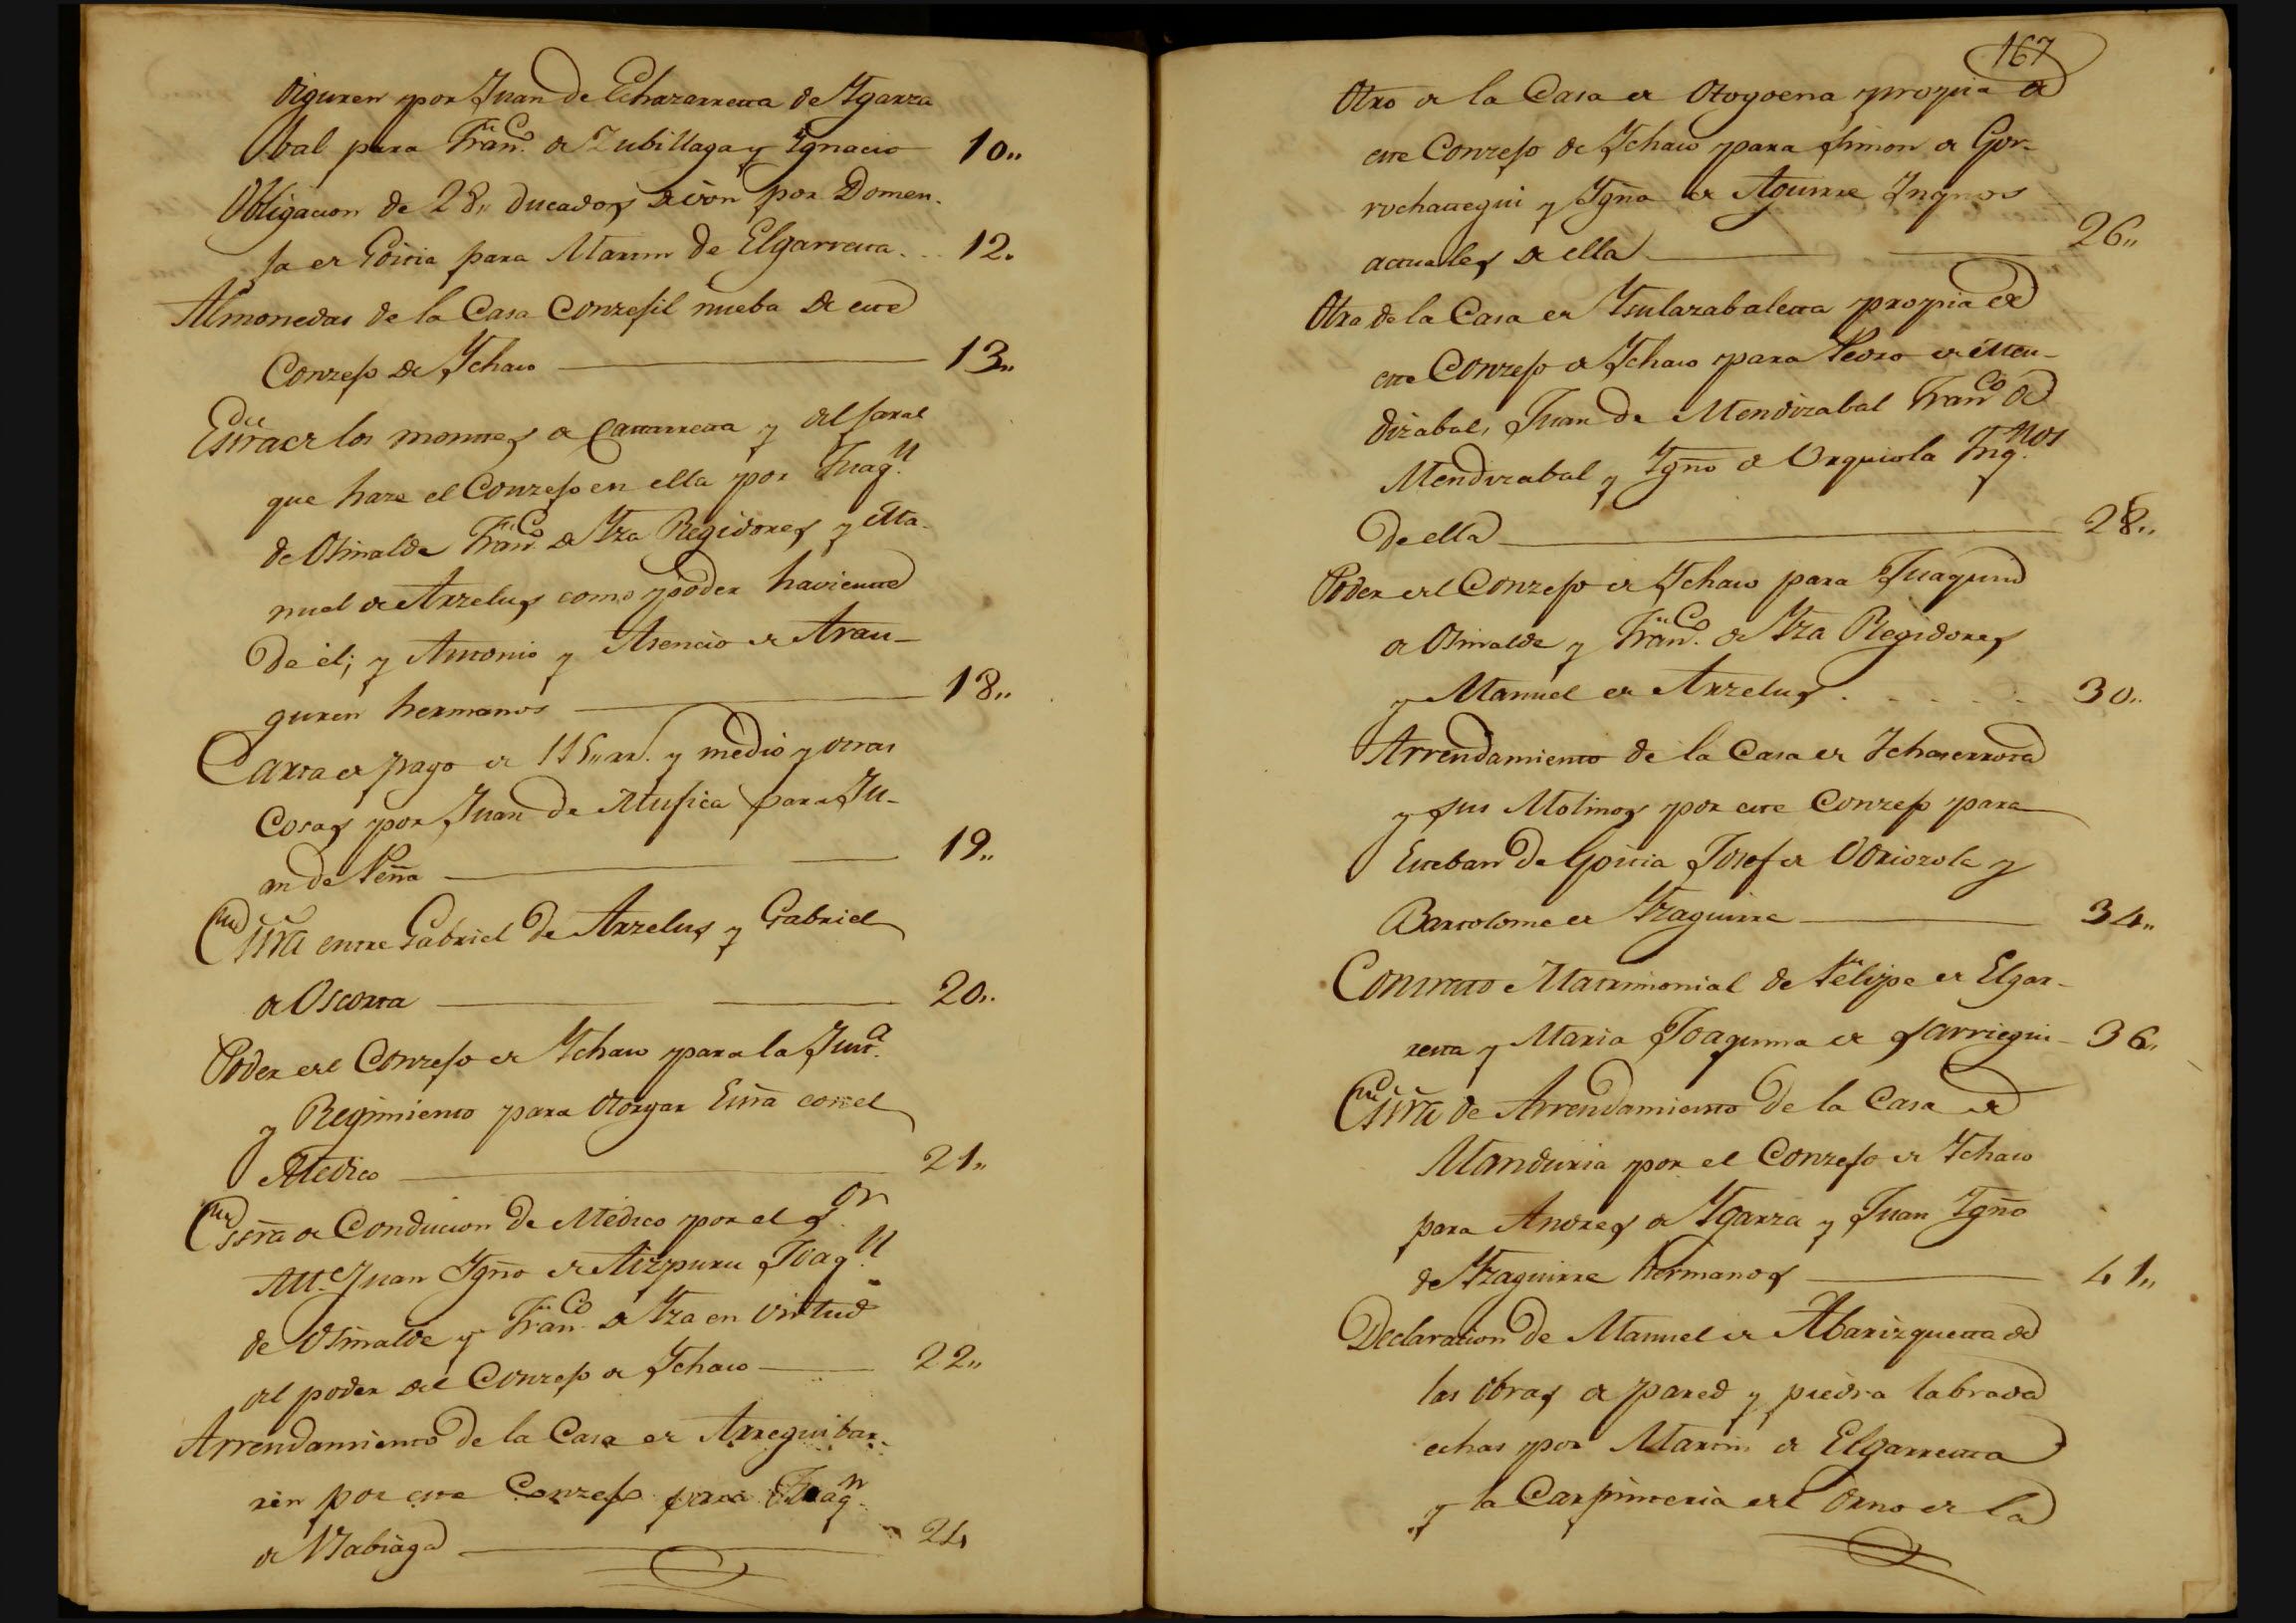 diguren por Juan de Echazarreta de Ygarza
bal para Franco. de Zubillaga y Ygnacio 10,,
Obligacion de 28,, ducados de von por Domen-
sa de Goitia para Martin de Elgarreta. .. 12.
Almonedas de la Casa Conzejil nueba de este
Conzejo de Ychaso 13,,
de los montes de y del jaral
que haze el Conzejo en ella por Juaqn.
de Osinalde Franco. de Yza Regidores y Ma-
nuel de Arzelus como poder haviente
de él; y Antonio y Asencio de Aran-
guren hermanos 18,,
Carta de pago de 115,, rr. y medio y otras
Cosas por Juan de Musica para Ju-
an de Peña 19,,
Essra entre Gabriel de Arzelus y Gabriel
de Oscorta 20,.
Poder del Conzejo de Ychaso para la Justa.
y Regimiento para otorgar Essra con el
Medico 21,,
Essra de Conducion de Medico por el Sor.
Alle. Juan Ygno de Aizpuru Joaqn.
de Osinalde y Franco. de Yza en virtud
del poder del Conzejo de Ychaso 22,,
Arrendamiento de la Casa de Arreguibar-
ren por este Conzejo para Joaqn.
de Uzabiaga 24
167
Otro de la Casa de Otogoena propia de
este Conzejo de Ychaso para Simon de Gor-
rochategui y Ygno de Aguirre Ynqnos
actuales de ella 26,,
Otra de la Casa de Ysulazabaleta propia de
este Conzejo de Ychaso para Pedro de Men-
dizabal, Juan de Mendizabal Franco de
Mendizabal y Ygno de Urquiola Ynq.nos
de ella 28,,
Poder del Conzejo de Ychaso para Juaquin
de Osinalde y Franco. de Yza Regidores
y Manuel de Arzelus . . . . . . 30,.
Arrendamiento de la Casa de Ychaserrota
y sus Molinos por este Conzejo para
Esteban de Goitia Josef de Oriozola y
Bartolome de Yzaguirre 34,,
Contrato Matrimonial de Felipe de Elgar-
reta y Maria Joaquina de Sarriegui 36,
Essra de Arrendamiento de la Casa de
Manduria por el Conzejo de Ychaso
para Andres de Ygarza y Juan Ygno
de Yzaguirre hermanos 41,,
Declaracion de Manuel de Abarizqueta de
las obras de pared y piedra labrada
echas por Martin de Elgarreta
y la Carpinteria del Orno de la